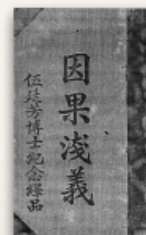 因果淺義
伍廷芳博士紀念繹品